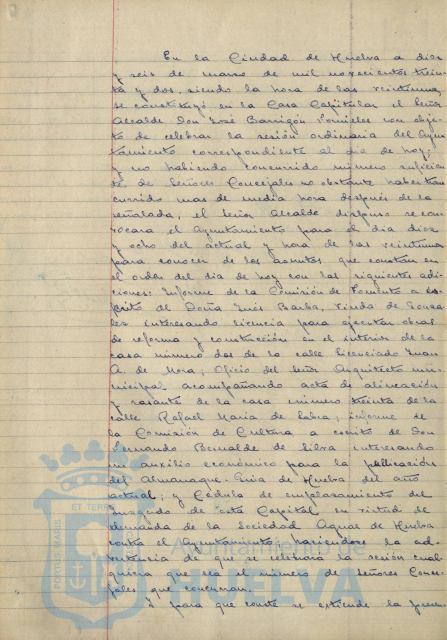 En la Ciudad de Huelva a diez
y seis de marzo de mil novecientos trein-
ta y dos, siendo la hora de las veintiuna,
se constituyó en la Casa Capitular el Señor
Alcalde Don José Barrigón Fornieles con obje-
to de celebrar la sesión ordinaria del Ayun-
tamiento correspondiente al dia de hoy;
y no habiendo concurrido número suficien-
te de Señores Concejales no obstante haber trans-
currido mas de media hora despues de la
señalada, el Señor Alcalde dispuso se con-
vocara el Ayuntamiento para el dia diez
y ocho del actual y hora de las veintiuna
para conocer de los asuntos que constan en
el orden del dia de hoy con las siguientes adi-
ciones: Informe de la Comisión de Fomento a es-
crito de Doña Inés Barba, Viuda de Gonza-
lez interesando licencia para ejecutar obras
de reforma y construcción en el interior de la
casa número dos de la calle licenciado Juan
A. de Mora; Oficio del Señor Arquitecto mu-
nicipal acompañando acta de alineación
y rasante de la casa número treinta de la
calle Rafael Maria de Labra; informe de
la Comisión de Cultura a escrito de Don
Fernando Bernalde de Silva interesando
un auxilio económico para la publicación
del Almanaque-Guia de Huelva del año
actual; y Cédula de emplazamiento del
Juzgado de esta Capital en virtud de
demanda de la Sociedad Aguas de Huelva
contra el Ayuntamiento; haciendose la ad-
vertencia de que se celebrará la sesión cual-
quiera que sea el número de Señores Conce-
jales que concurran.
Y para que conste se extiende la presen-
PORTUS MARIS ET TERRAE
Ayuntamiento de
HUELVA